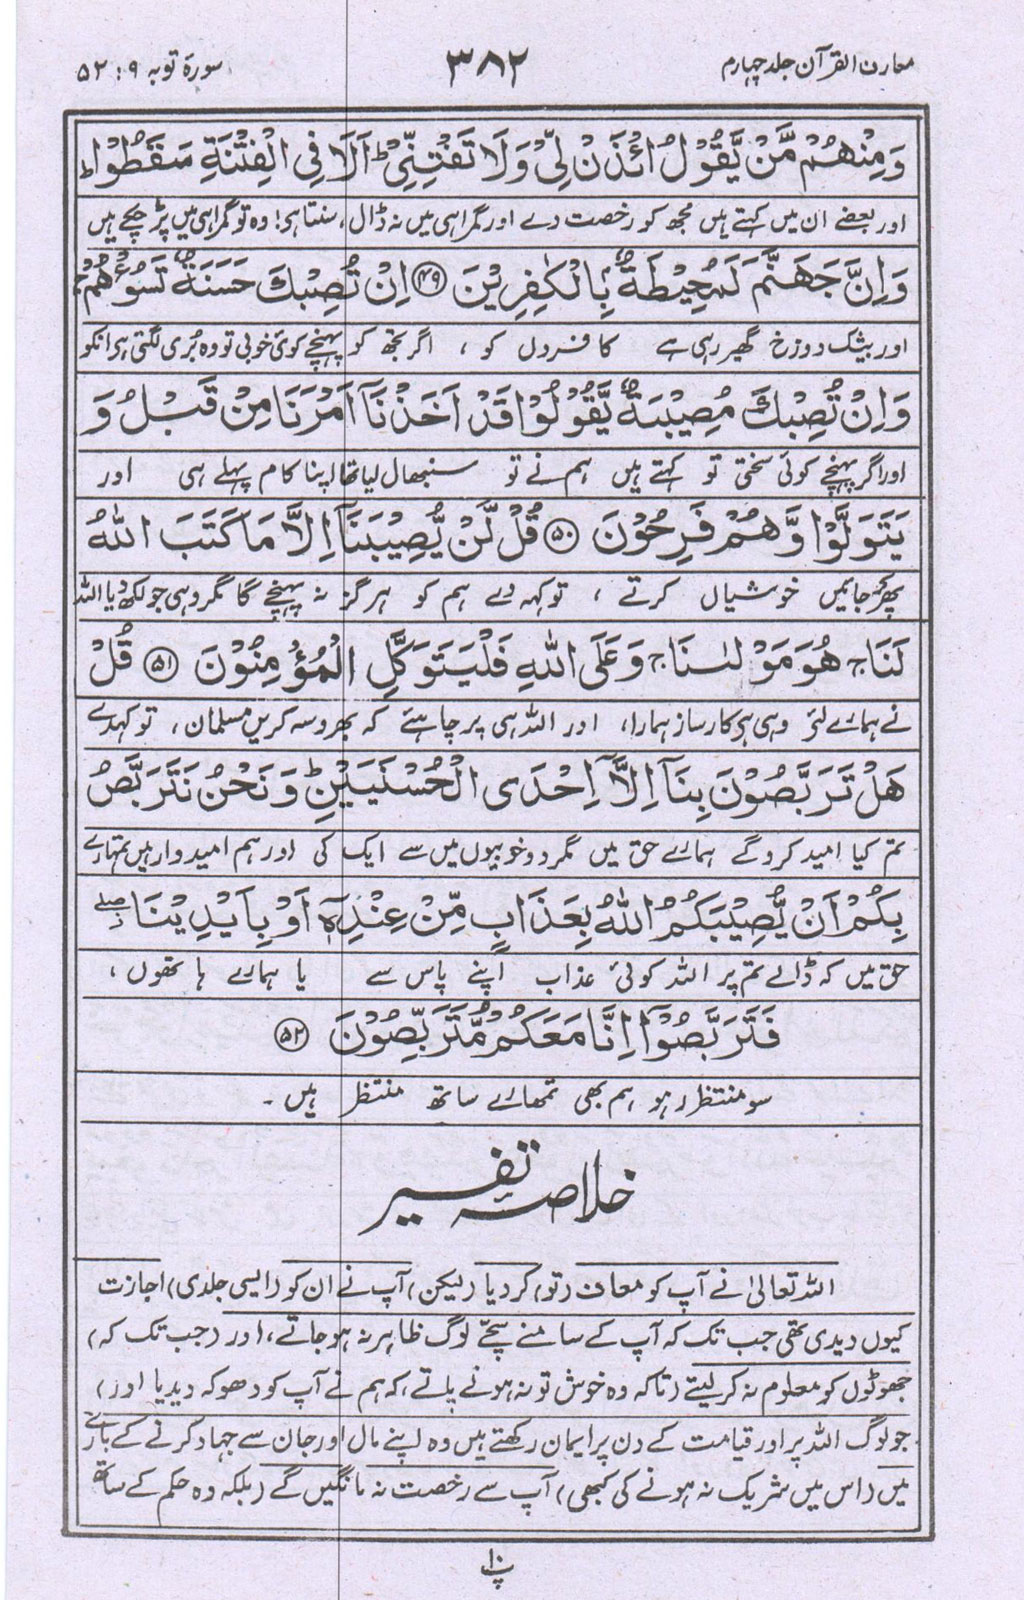 معارف القرآن جلد چہارم
۳۸۲
سورۃ توبہ ۹ : ۵۲
وَمِنْهُمْ مَّنْ يَّقُوْلُ ائْذَنْ لِّيْ وَلَا تَفْتِنِّيْ ؕ اَلَا فِي الْفِتْنَةِ سَقَطُوْا ؕ
اور بعضے ان میں کہتے ہیں مجھ کو رخصت دے اور گمراہی میں نہ ڈال ، سنتا ہی! وہ تو گمراہی میں پڑ چکے ہیں
وَاِنَّ جَهَنَّمَ لَمُحِيْطَةٌۢ بِالْكٰفِرِيْنَ ﴿۴۹﴾ اِنْ تُصِبْكَ حَسَنَةٌ تَسُؤْهُمْ ۚ
اور بیشک دوزخ گھیر رہی ہے کافروں کو ، اگر تجھ کو پہنچے کوئی خوبی تو وہ بُری لگتی ہی انکو
وَاِنْ تُصِبْكَ مُصِيْبَةٌ يَّقُوْلُوْا قَدْ اَخَذْنَآ اَمْرَنَا مِنْ قَبْلُ وَ
اور اگر پہنچے کوئی سختی تو کہتے ہیں ہم نے تو سنبھال لیا تھا اپنا کام پہلے ہی اور
يَتَوَلَّوْا وَّهُمْ فَرِحُوْنَ ﴿۵۰﴾ قُلْ لَّنْ يُّصِيْبَنَآ اِلَّا مَا كَتَبَ اللّٰهُ
پھر کر جائیں خوشیاں کرتے ، تو کہہ دے ہم کو ہرگز نہ پہنچے گا مگر وہی جو لکھ دیا اللہ
لَنَا ۚ هُوَ مَوْلٰىنَا ۚ وَعَلَى اللّٰهِ فَلْيَتَوَكَّلِ الْمُؤْمِنُوْنَ ﴿۵۱﴾ قُلْ
نے ہمارے لئے وہی ہی کارساز ہمارا، اور اللہ ہی پر چاہئے کہ بھروسہ کریں مسلمان ، تو کہدے
هَلْ تَرَبَّصُوْنَ بِنَآ اِلَّآ اِحْدَى الْحُسْنَيَيْنِ ؕ وَنَحْنُ نَتَرَبَّصُ
تم کیا امید کروگے ہمارے حق میں مگر دو خوبیوں میں سے ایک کی اور ہم امیدوار ہیں تمہارے
بِكُمْ اَنْ يُّصِيْبَكُمُ اللّٰهُ بِعَذَابٍ مِّنْ عِنْدِهٖٓ اَوْ بِاَيْدِيْنَا ۖ
حق میں کہ ڈالے تم پر اللہ کوئی عذاب اپنے پاس سے یا ہمارے ہاتھوں ،
فَتَرَبَّصُوْٓا اِنَّا مَعَكُمْ مُّتَرَبِّصُوْنَ ﴿۵۲﴾
سو منتظر رہو ہم بھی تمھارے ساتھ منتظر ہیں ۔
خلاصہ تفسیر
اللہ تعالیٰ نے آپ کو معاف (تو) کر دیا (لیکن) آپ نے ان کو (ایسی جلدی) اجازت
کیوں دیدی تھی جب تک کہ آپ کے سامنے سچے لوگ ظاہر نہ ہو جاتے، اور (جب تک کہ)
جھوٹوں کو معلوم نہ کر لیتے (تاکہ وہ خوش تو نہ ہونے پاتے، کہ ہم نے آپ کو دھوکہ دیدیا اور)
جو لوگ اللہ پر اور قیامت کے دن پر ایمان رکھتے ہیں وہ اپنے مال اور جان سے جہاد کرنے کے بارے
میں (اس میں شریک نہ ہونے کی کبھی) آپ سے رخصت نہ مانگیں گے (بلکہ وہ حکم کے ساتھ